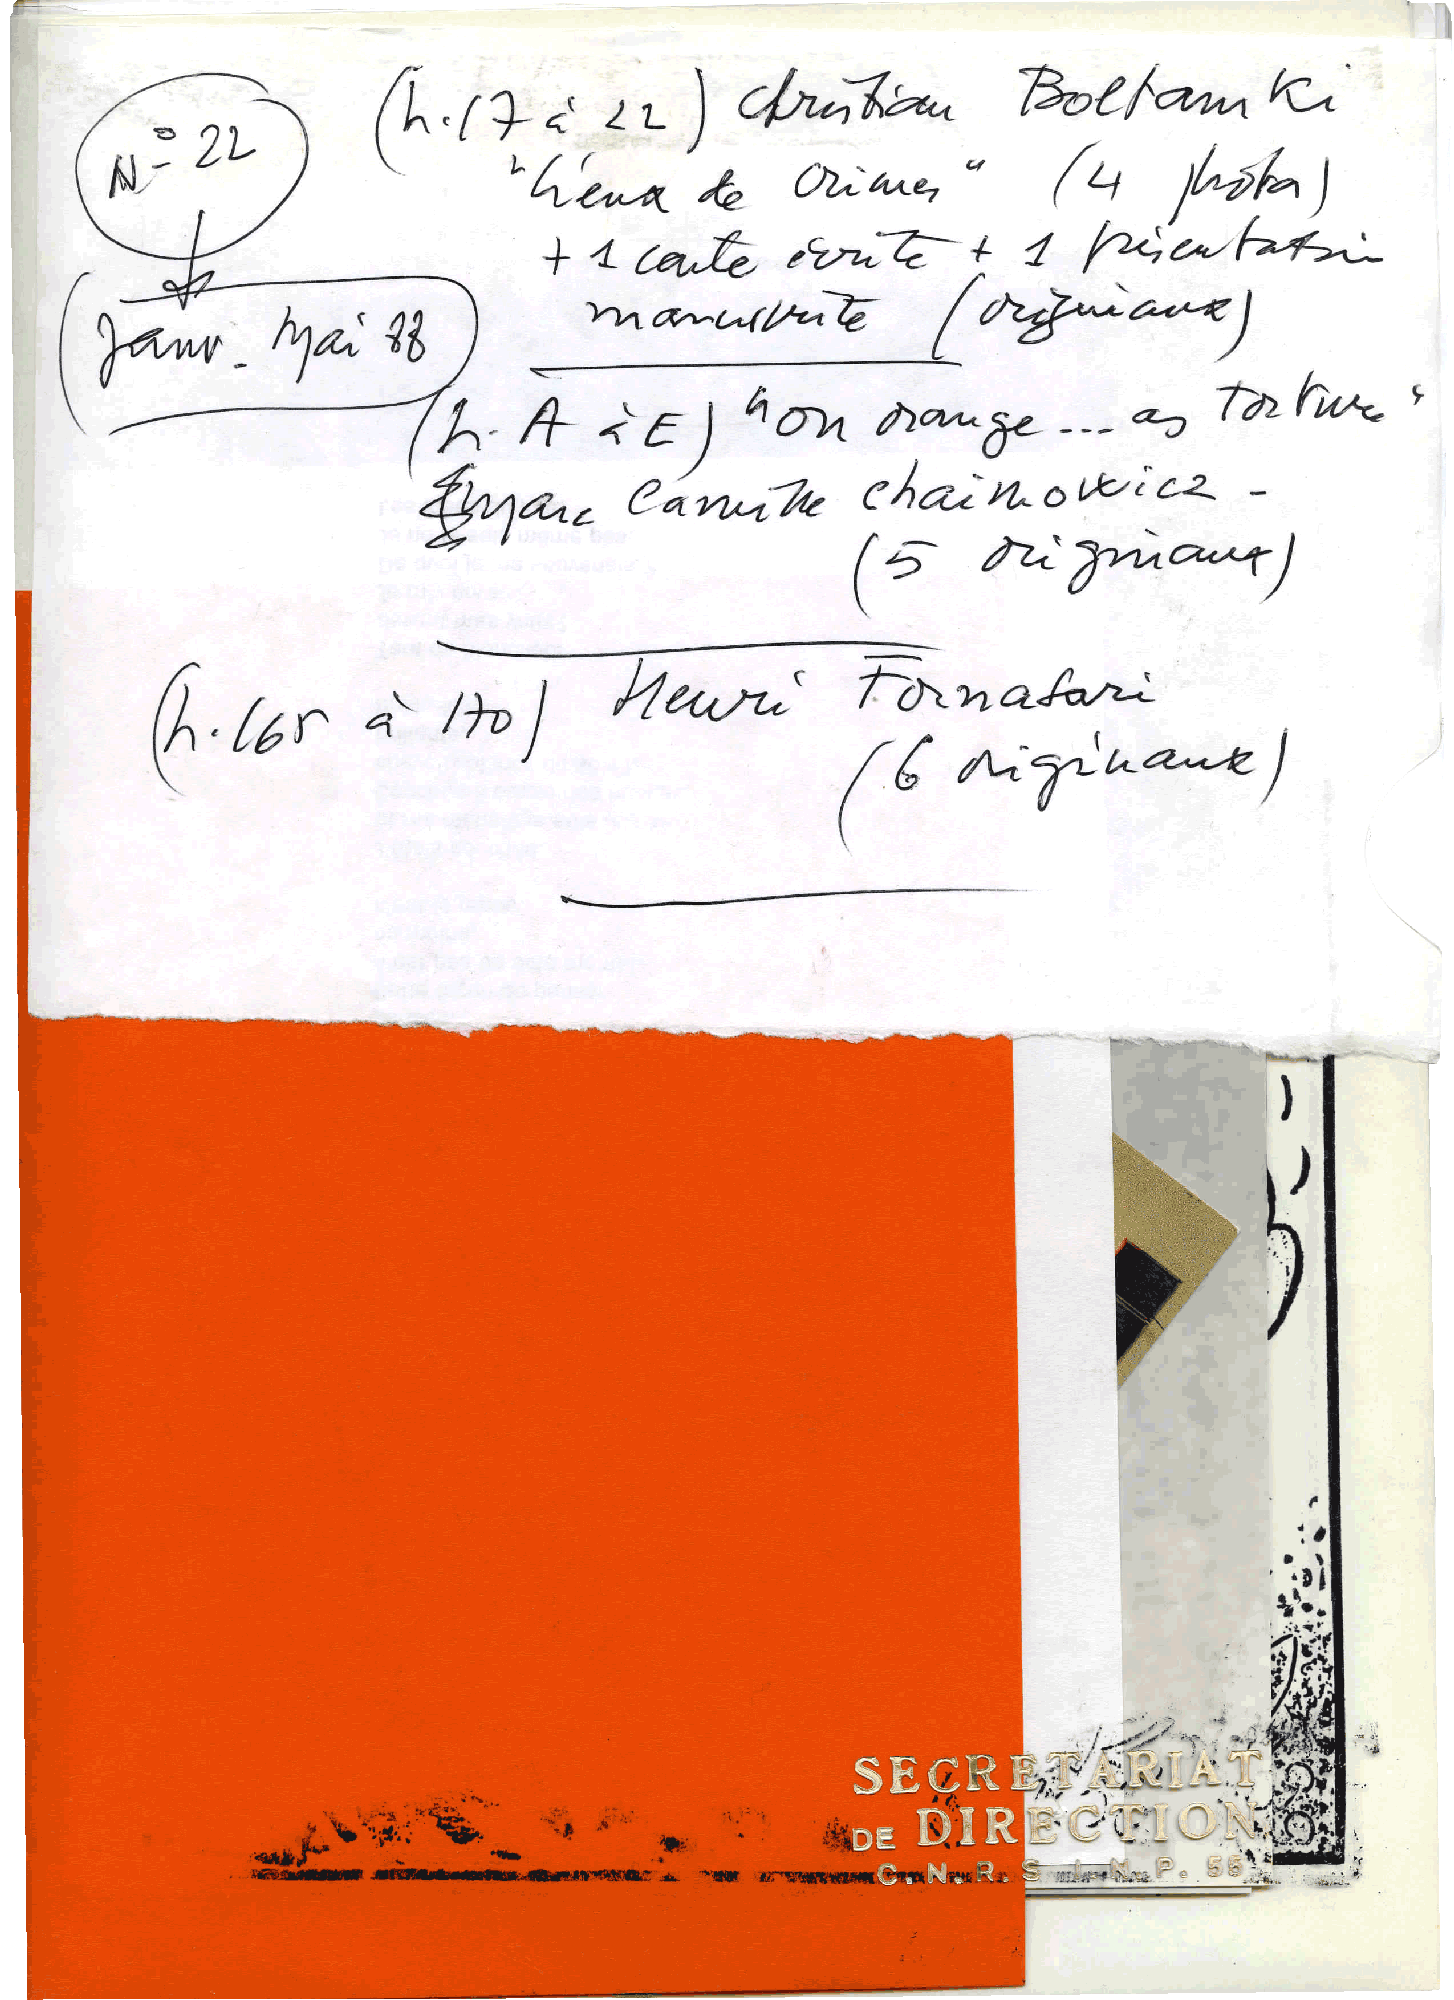 N° 22
Janv. Mai 88
(p. 17 à 22) Christian Boltanski
"Lieux de Crimes" (4 photos)
+ 1 carte écrite + 1 présentation
manuscrite (originaux)
(p. A à E) "on orange ... as torture"
Marc Camille Chaimowicz -
(5 originaux)
(p. 165 à 170) Henri Fornasari
(6 originaux)
SECRETARIAT
DE DIRECTION
C.N.R.S. I.N.P. 55